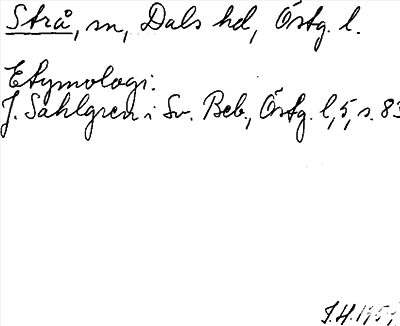 Strå, sn, Dals hd, Östg. l.
Etymologi:
J. Sahlgren i Sv. Beb., Östg. l, 5, s. 83
J.H.